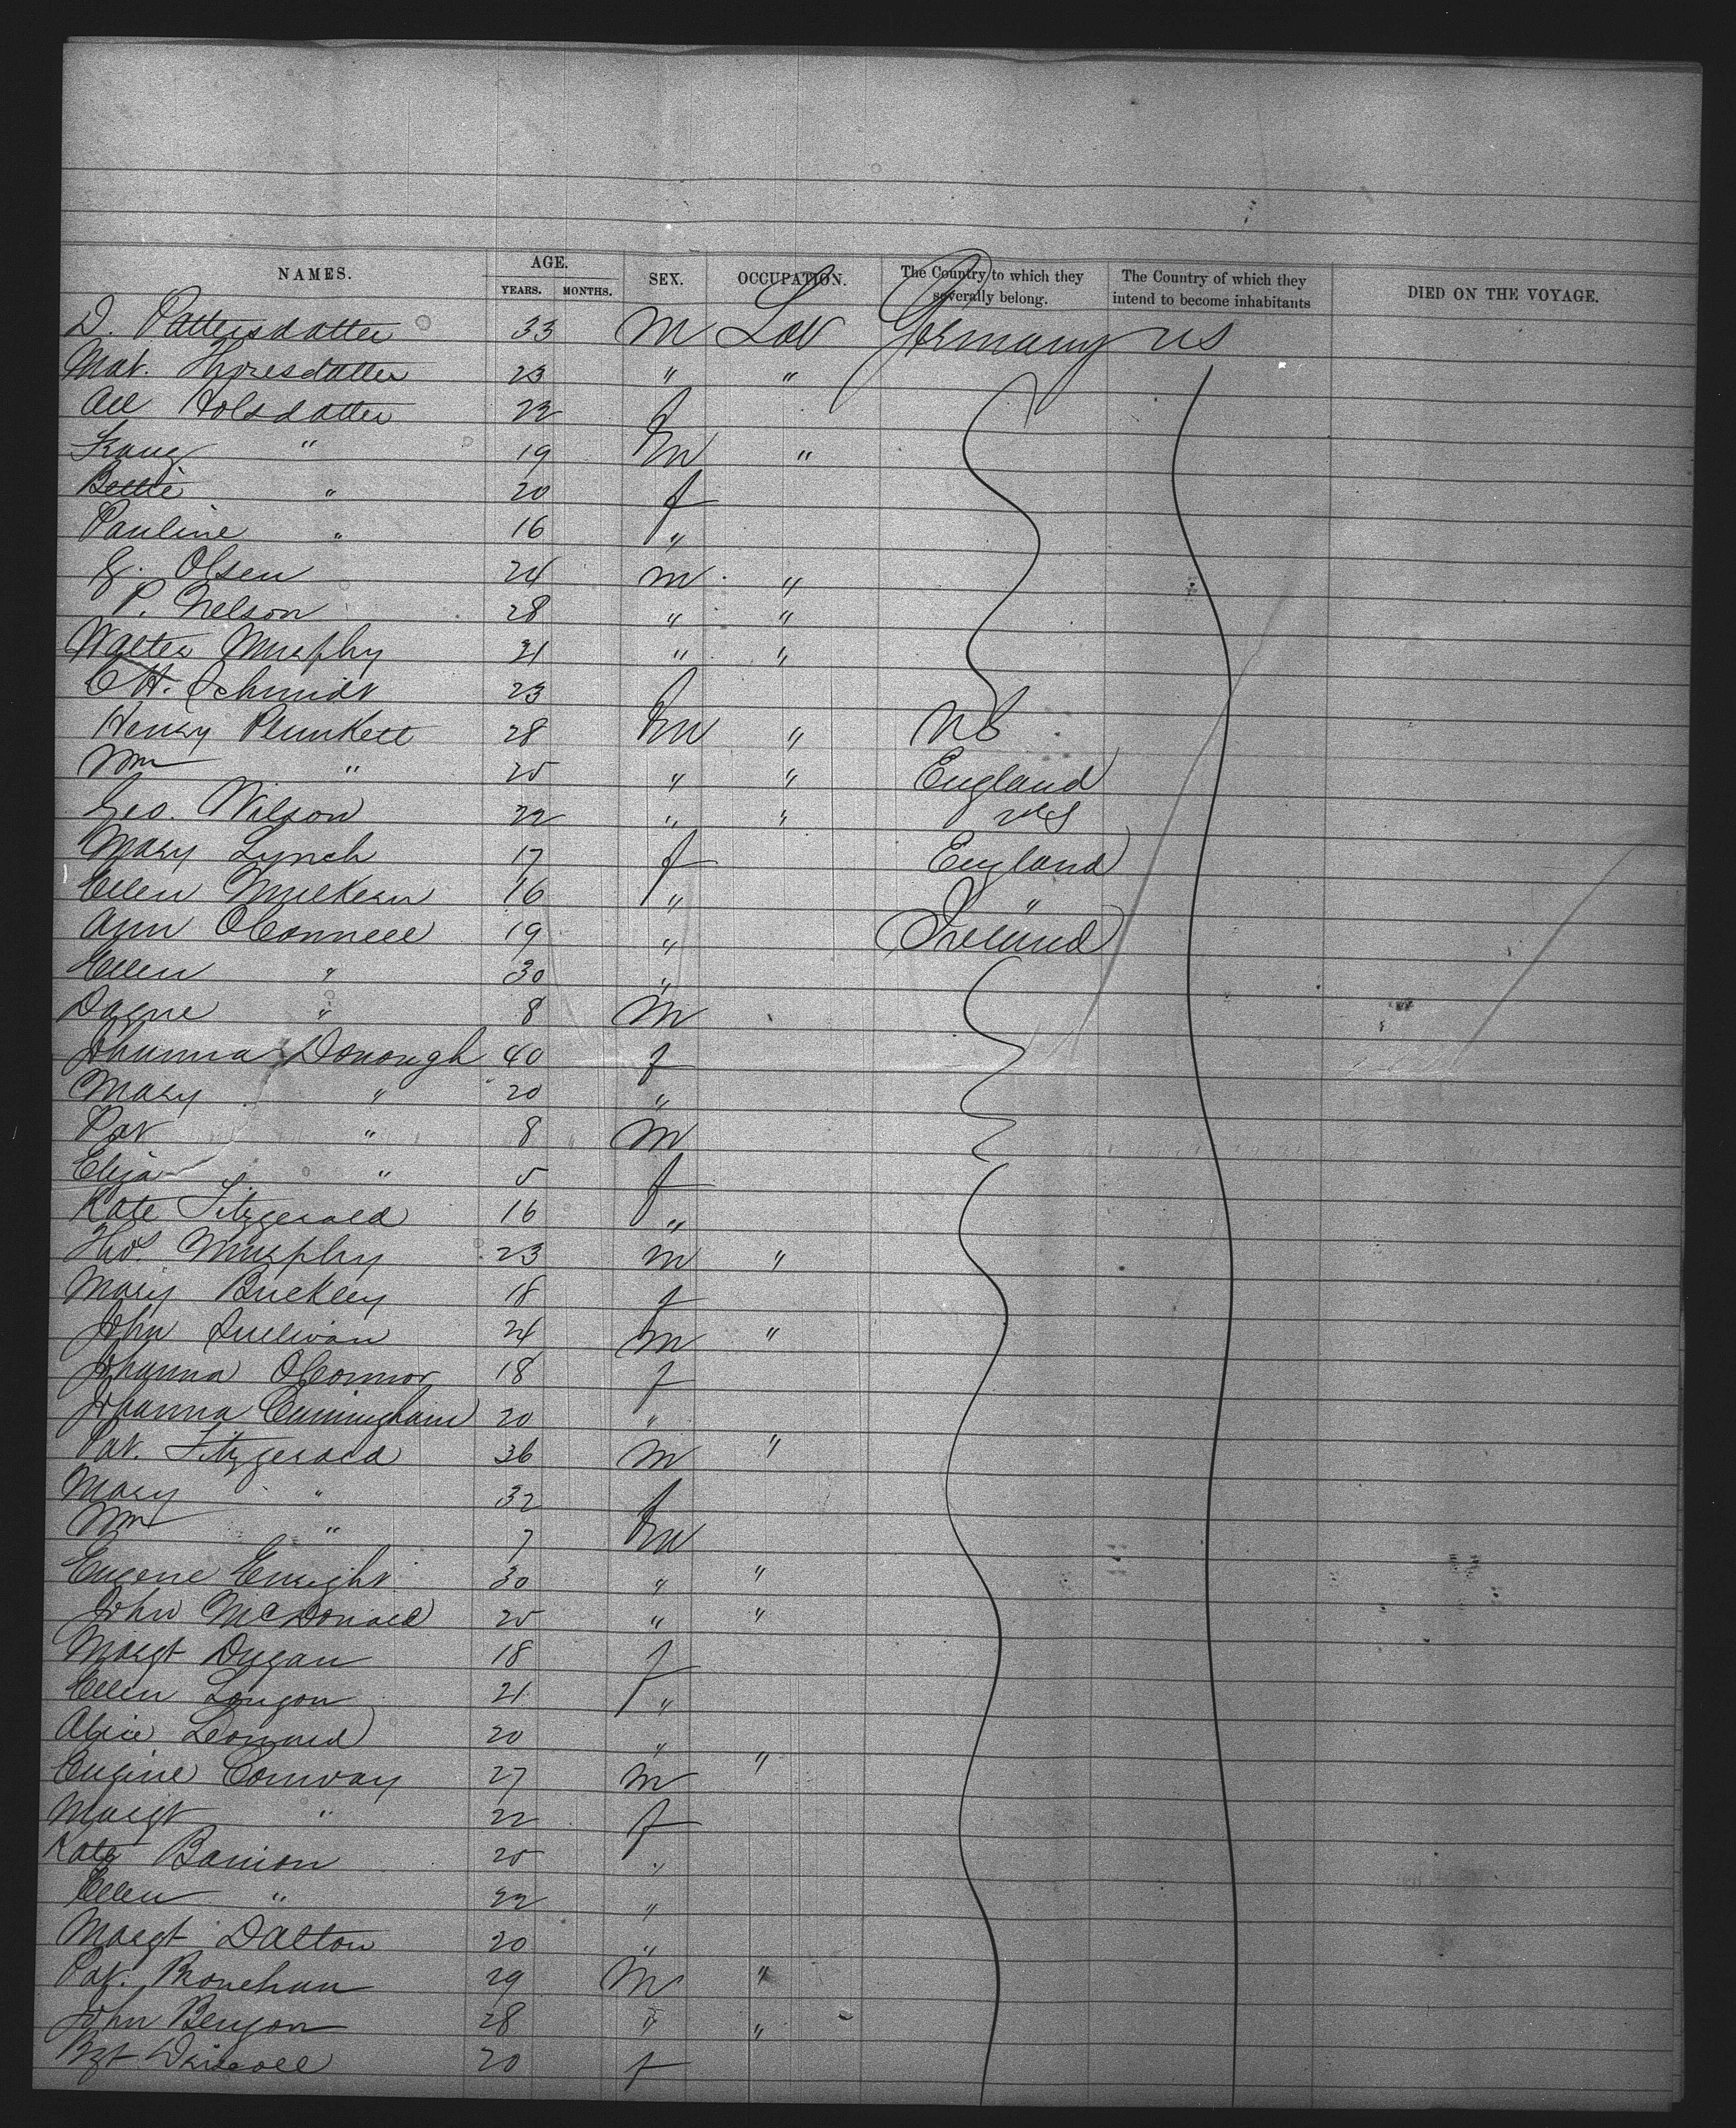 NAMES. AGE. YEARS. MONTHS. SEX. OCCUPATION. The Country to which they severally belong. The Country of which they intend to become inhabitants DIED ON THE VOYAGE.
D. Pattersdatter 33 M Lab Germany US
Mat. 23 " "
All Holsdatter 22 f
" 19 m "
Bettie " 20 f
Pauline " 16 "
Olsen 24 m "
P. Nelson 28 " "
Walter Murphy 21 " "
C H. Schmidt 23 f
Henry Plunkett 28 m " US
Wm " 25 " " England
Geo. Wilson 22 " " US
Mary Lynch 17 f England
Ellen Mulkern 16 " "
Ann OConnell 19 " Ireland
Ellen " 30 "
" 8 M
Johanna Donough 40 f
Mary " 20 "
Pat " 8 M
Eliza " 5 f
Kate Fitzgerald 16 "
Thos Murphy 23 m "
Mary Buckley 18 f
John Sullivan 24 m "
Johanna OConnor 18 f
Johanna Cuningham 20 "
Pat. Fitzgerald 36 m "
Mary " 32 f
Wm " 7 m
Eugene Enright 30 " "
John McDonald 25 " "
Margt Dugan 18 f
Ellen 21 "
Alice Leonard 20 "
Eugine Conway 27 m "
Margt " 22 f
Kate Banion 25 "
Ellen " 22 "
Margt Dalton 20 "
Pat. 29 M "
John 28 " "
Bgt Driscoll 20 f